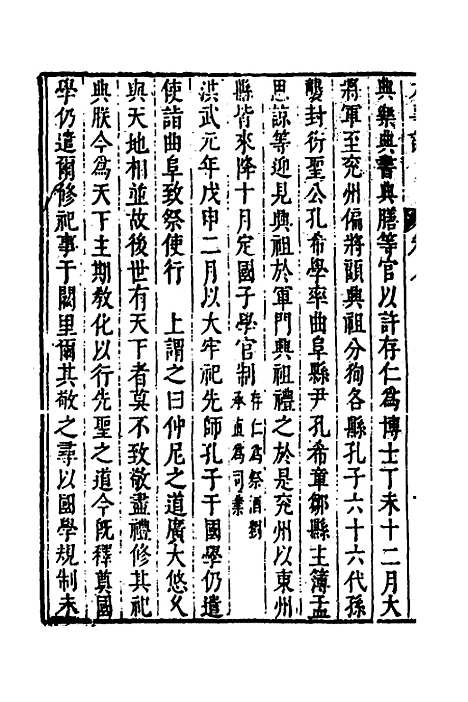 典樂典書典膳等官以許存仁爲博士丁未十二月大
將軍至兖州偏將顧興祖分狥各縣孔子六十六代孫
襲封衍聖公孔希學率曲阜縣尹孔希章鄒縣主簿孟
思諒等迎見興祖於軍門興祖禮之於是兖州以東州
縣皆來降十月定國子學官制存仁爲祭酒劉承直爲司業
洪武元年戊申二月以大牢祀先師孔子于國學仍遣
使詣曲阜致祭使行　上謂之曰仲尼之道廣大悠久
與天地相並故後世有天下者莫不致敬盡禮修其祀
典朕今爲天下主期教化以行先聖之道今既釋奠國
學仍遣爾修祀事于闕里爾其敬之尋以國學規制未